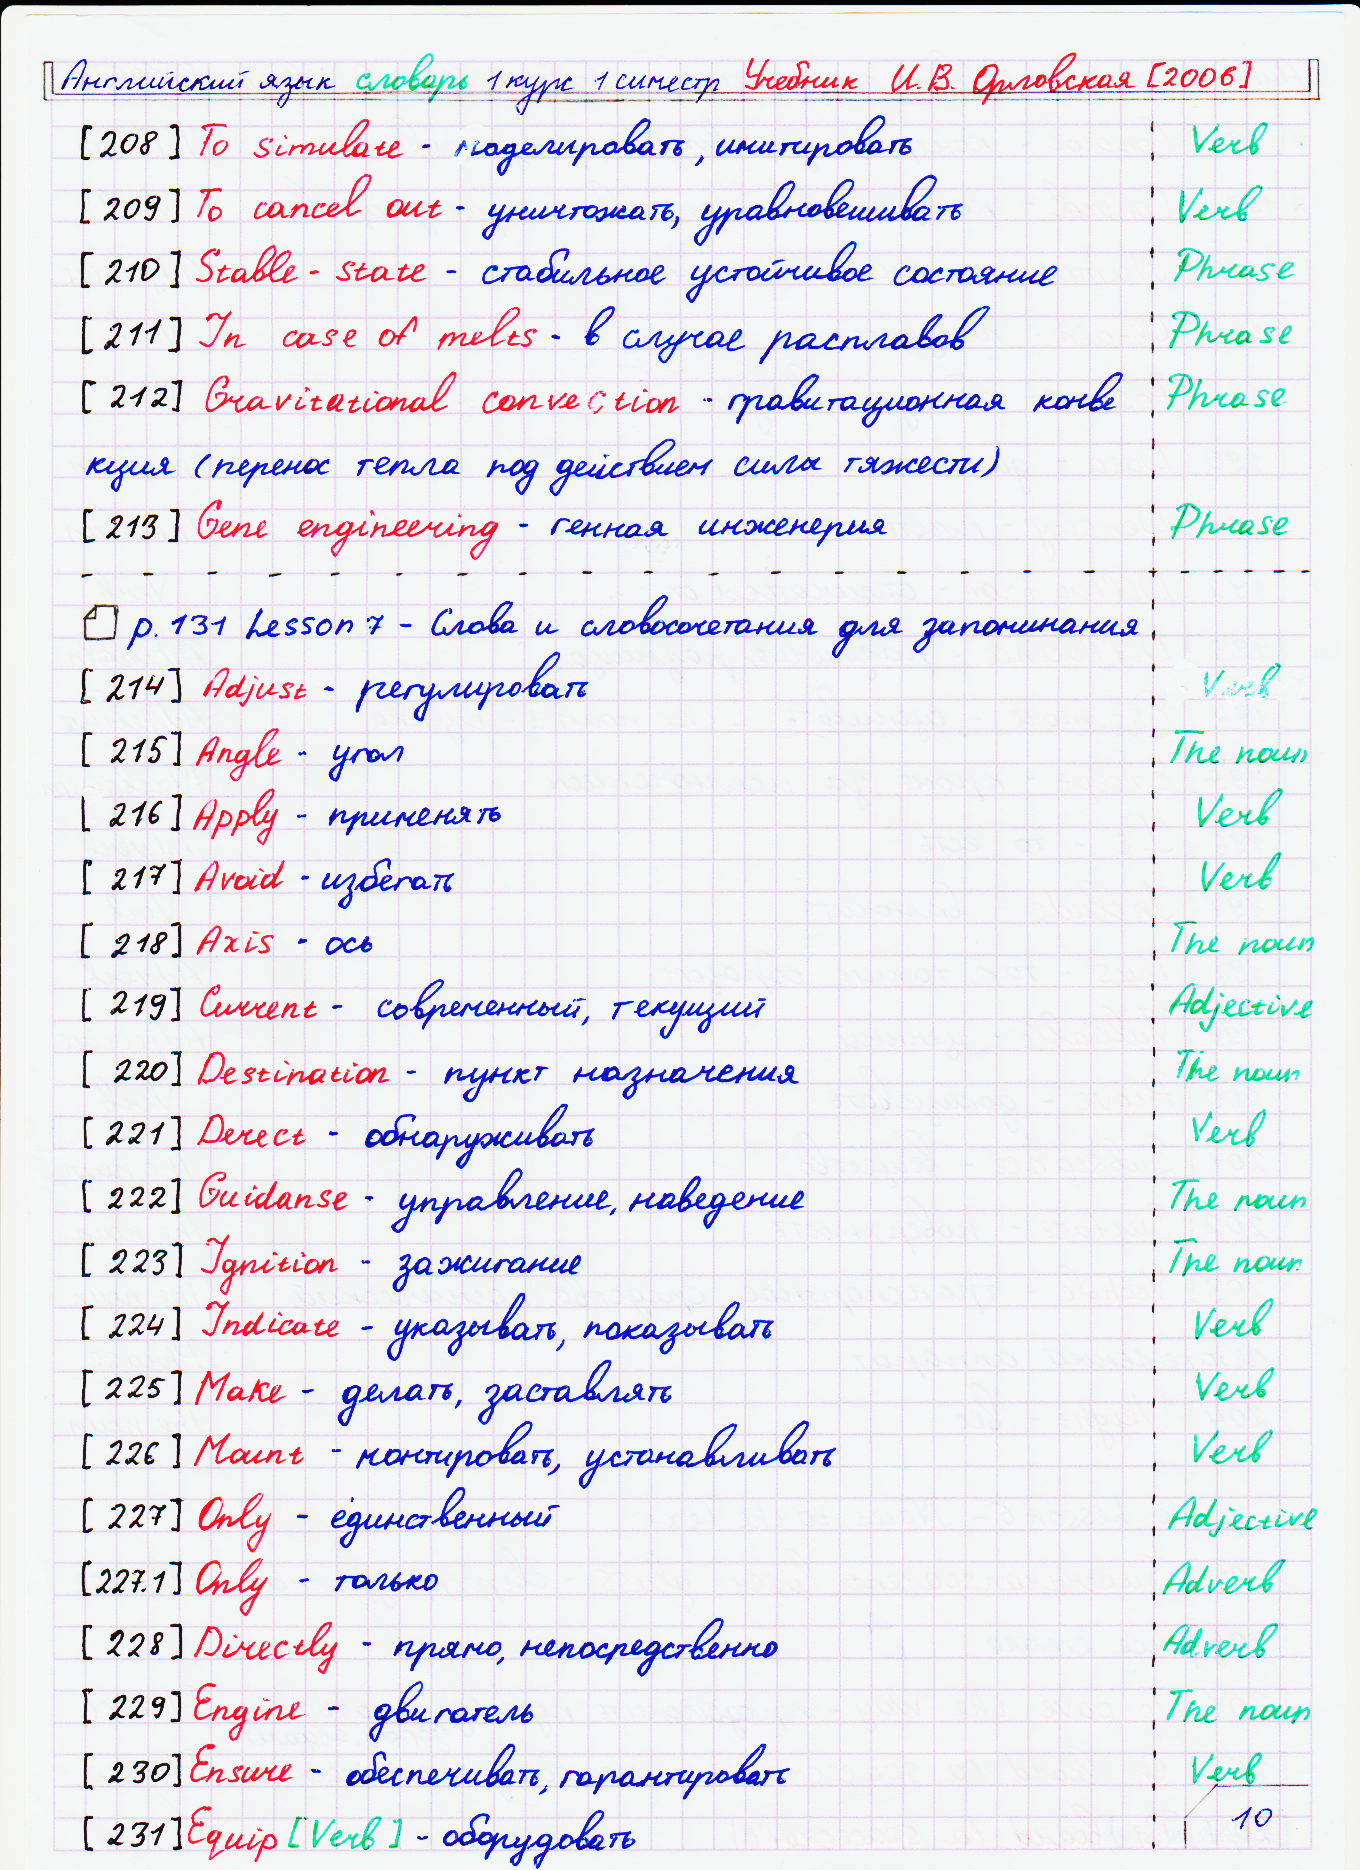 Английский язык словарь 1 курс 1 симестр Учебник И.В. Орловская [2006]
[208] To simulate - моделировать, имитировать Verb
[209] To cancel out - уничтожать, уравновешивать Verb
[210] Stable-state - стабильное устойчивое состояние Phrase
[211] In case of melts - в случае расплавов Phrase
[212] Gravitational convection - гравитационная конве Phrase
кция (перенос тепла под действием силы тяжести)
[213] Gene engineering - генная инженерия Phrase
p. 131 Lesson 7 - Слова и словосочетания для запоминания
[214] Adjust - регулировать Verb
[215] Angle - угол The noun
[216] Apply - применять Verb
[217] Avoid - избегать Verb
[218] Axis - ось The noun
[219] Current - современный, текущий Adjective
[220] Destination - пункт назначения The noun
[221] Derect - обнаруживать Verb
[222] Guidanse - управление, наведение The noun
[223] Ignition - зажигание The noun
[224] Indicate - указывать, показывать Verb
[225] Make - делать, заставлять Verb
[226] Mount - монтировать, устанавливать Verb
[227] Only - единственный Adjective
[227.1] Only - только Adverb
[228] Directly - прямо, непосредственно Adverb
[229] Engine - двигатель The noun
[230] Ensure - обеспечивать, гарантировать Verb
[231] Equip [Verb] - оборудовать
10